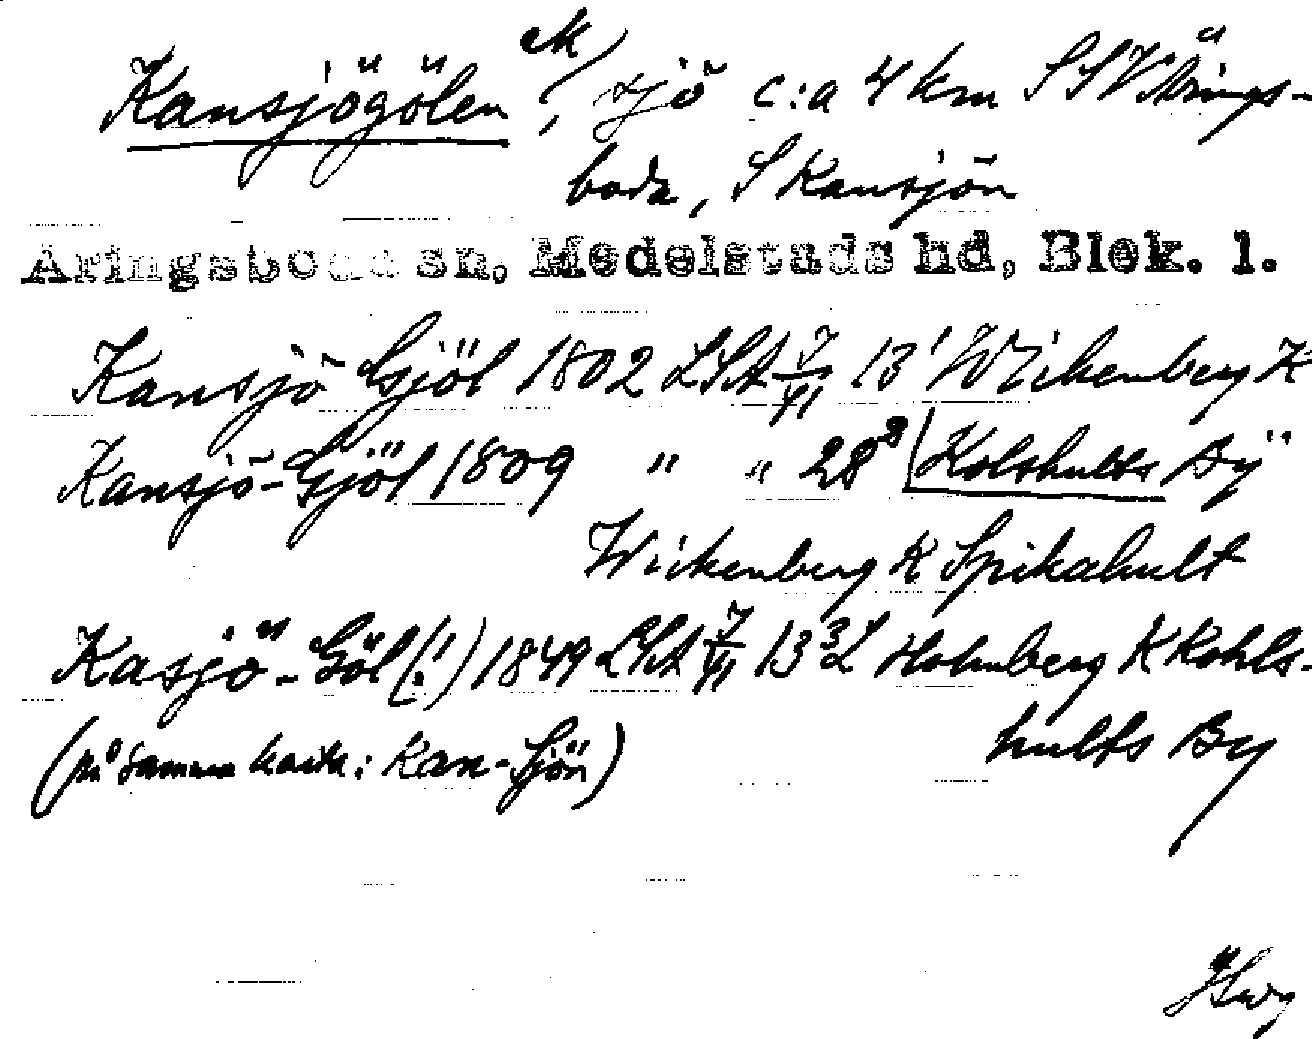 Kansjögölen ek/, sjö c:a 4 km SSV Årings-
boda, S Kansjön
Åringsboda sn. Medelstads hd, Blek. l.
Kansjö Gjöl 1802 LSA J/VI 13¹ Wikenberg K
Kansjö-Gjöl 1809 " " 28² Kolshults By
Wickenberg K Spikahult
Kasjö-Göl (!) 1849 LSA J/VI 13³L Holmberg K Kohls-
hults By
(på samma karta: Kan-Sjön)